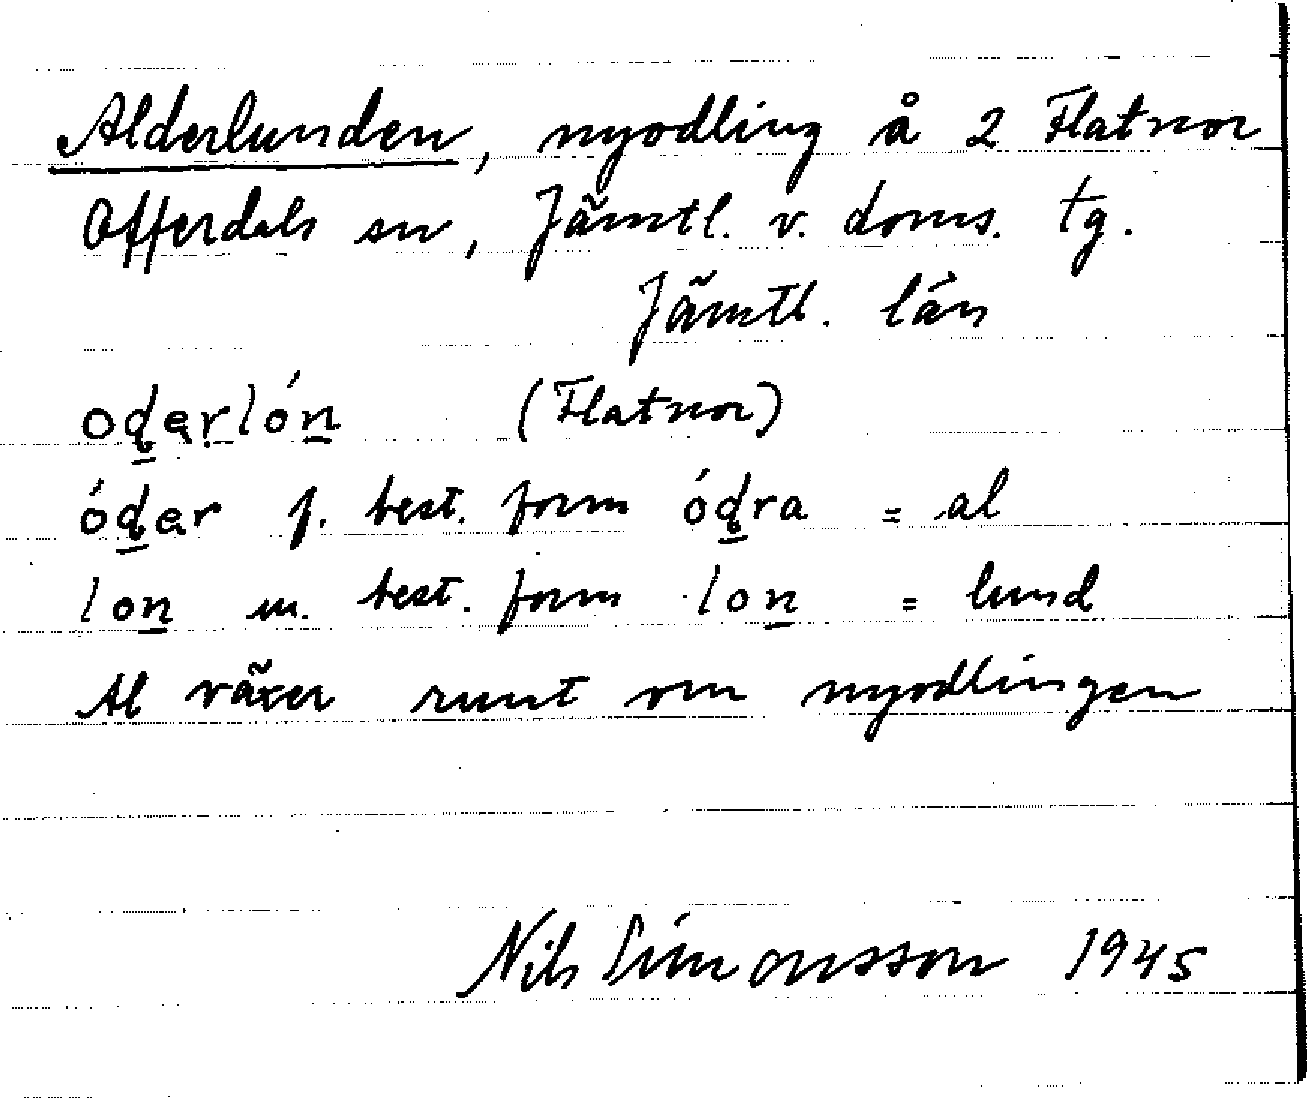 Alderlunden, nyodling å 2 Flatnor
Offerdals sn, Jämtl. v. doms. tg.
Jämtl. län
oḏərlón (Flatnor)
óḏər f. best. form óḏra = al
loṉ m. best. form loṉ = lund
Al växer runt om nyodlingen
Nils Simonsson 1945